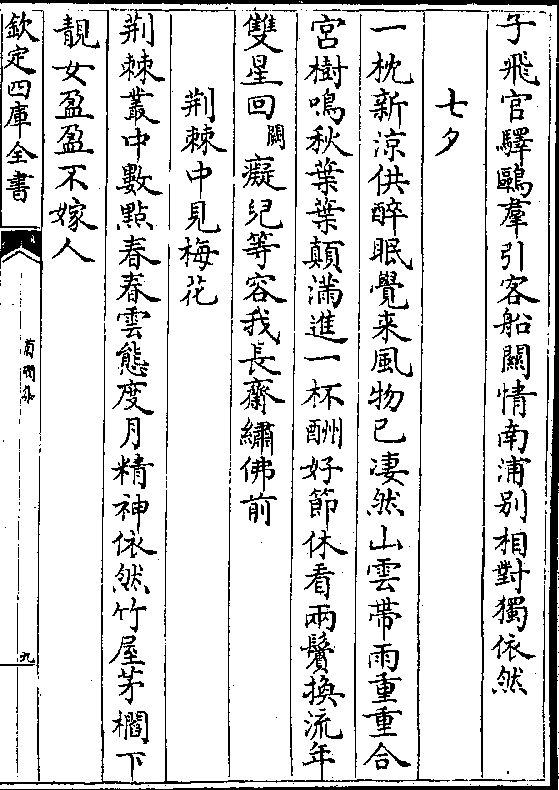 子飛官驛鷗羣引客船關情南浦别相對獨依然
七夕
一枕新涼供醉眠覺来風物已凄然山雲帶雨重重合
宫樹鳴秋葉葉顛滿進一杯酬好節休看兩鬢換流年
雙星回闕癡兒等容我長齋繡佛前
荆棘中見梅花
荆棘叢中數點春春雲態度月精神依然竹屋茅櫩下
靚女盈盈不嫁人
欽定四庫全書
菊磵集
九